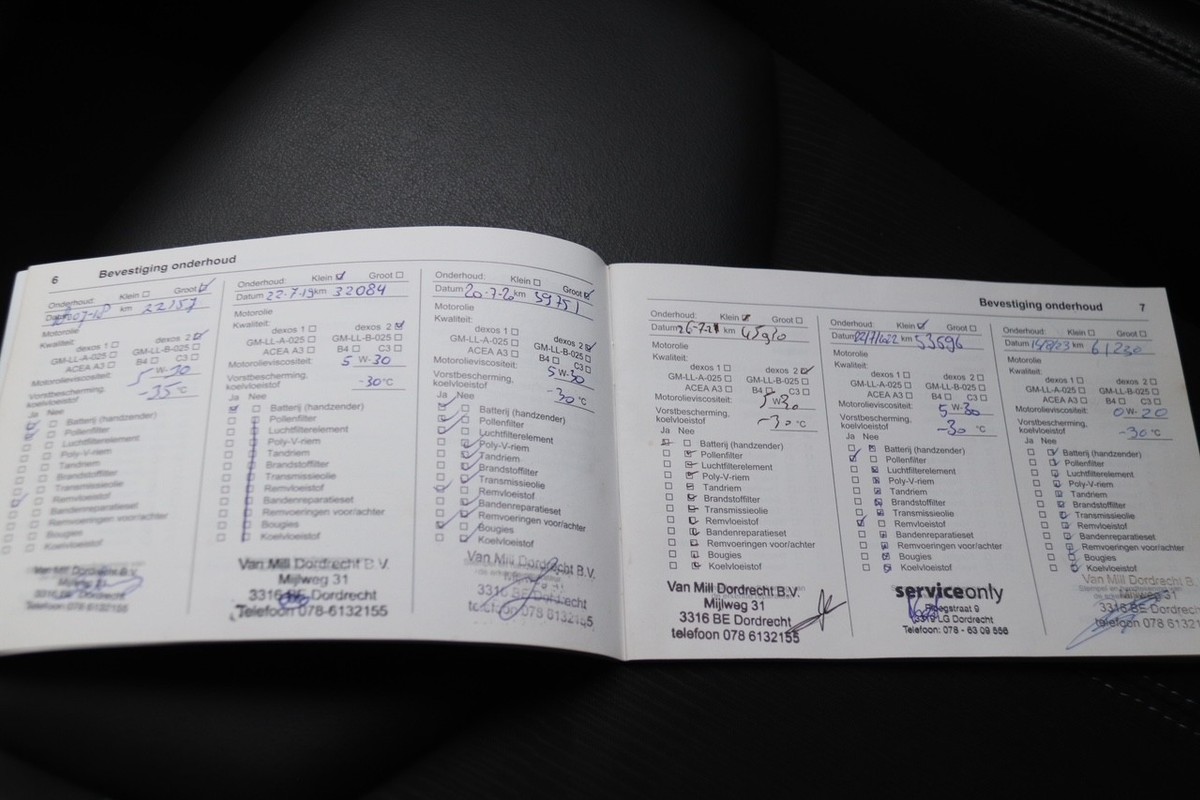 6 Bevestiging onderhoud
Onderhoud: Klein Groot
km 22157
Motorolie
Kwaliteit: dexos 1 dexos 2
GM-LL-A-025 GM-LL-B-025
ACEA A3 C3
Motorolieviscositeit: 5 W-30
Vorstbescherming, koelvloeistof -35 °C
Ja Nee
Batterij (handzender)
Pollenfilter
Luchtfilterelement
Poly-V-riem
Tandriem
Brandstoffilter
Transmissieolie
Remvloeistof
Bandenreparatieset
Remvoeringen voor/achter
Bougies
Koelvloeistof
Van Mill Dordrecht B.V.
3316 BE Dordrecht
Telefoon 078-6132155
Onderhoud: Klein Groot
Datum 22-7-19 km 32084
Motorolie
Kwaliteit:
dexos 1 dexos 2
GM-LL-A-025 GM-LL-B-025
ACEA A3 B4 C3
Motorolieviscositeit: 5 W-30
Vorstbescherming,
koelvloeistof -30 °C
Ja Nee
Batterij (handzender)
Pollenfilter
Luchtfilterelement
Poly-V-riem
Tandriem
Brandstoffilter
Transmissieolie
Remvloeistof
Bandenreparatieset
Remvoeringen voor/achter
Bougies
Koelvloeistof
Van Mill Dordrecht B.V.
Mijlweg 31
3316 BE Dordrecht
Telefoon 078-6132155
Onderhoud: Klein Groot
Datum 20-7-20 km 39751
Motorolie
Kwaliteit:
dexos 1 dexos 2
GM-LL-A-025 GM-LL-B-025
ACEA A3 B4 C3
Motorolieviscositeit: 5 W-30
Vorstbescherming,
koelvloeistof -30 °C
Ja Nee
Batterij (handzender)
Pollenfilter
Luchtfilterelement
Poly-V-riem
Tandriem
Brandstoffilter
Transmissieolie
Remvloeistof
Bandenreparatieset
Remvoeringen voor/achter
Bougies
Koelvloeistof
Van Mill Dordrecht B.V.
3316 BE Dordrecht
078 6132155
Bevestiging onderhoud 7
Onderhoud: Klein Groot
Datum 26-7-21 km 45910
Motorolie
Kwaliteit:
dexos 1 dexos 2
GM-LL-A-025 GM-LL-B-025
ACEA A3 B4 C3
Motorolieviscositeit: 5 W-30
Vorstbescherming,
koelvloeistof -30 °C
Ja Nee
Batterij (handzender)
Pollenfilter
Luchtfilterelement
Poly-V-riem
Tandriem
Brandstoffilter
Transmissieolie
Remvloeistof
Bandenreparatieset
Remvoeringen voor/achter
Bougies
Koelvloeistof
Van Mill Dordrecht B.V.
Mijlweg 31
3316 BE Dordrecht
telefoon 078 6132155
Onderhoud: Klein Groot
Datum 22/7/2022 km 53696
Motorolie
Kwaliteit:
dexos 1 dexos 2
GM-LL-A-025 GM-LL-B-025
ACEA A3 B4 C3
Motorolieviscositeit: 5 W-30
Vorstbescherming,
koelvloeistof -30 °C
Ja Nee
Batterij (handzender)
Pollenfilter
Luchtfilterelement
Poly-V-riem
Tandriem
Brandstoffilter
Transmissieolie
Remvloeistof
Bandenreparatieset
Remvoeringen voor/achter
Bougies
Koelvloeistof
serviceonly
LG Dordrecht
Telefoon: 078 - 63 09 556
Onderhoud: Klein Groot
Datum 15/8/23 km 61230
Motorolie
Kwaliteit:
dexos 1 dexos 2
GM-LL-A-025 GM-LL-B-025
ACEA A3 B4 C3
Motorolieviscositeit: 0 W-20
Vorstbescherming,
koelvloeistof -30 °C
Ja Nee
Batterij (handzender)
Pollenfilter
Luchtfilterelement
Poly-V-riem
Tandriem
Brandstoffilter
Transmissieolie
Remvloeistof
Bandenreparatieset
Remvoeringen voor/achter
Bougies
Koelvloeistof
Van Mill Dordrecht B.V.
3316 BE Dordrecht
telefoon 078 6132